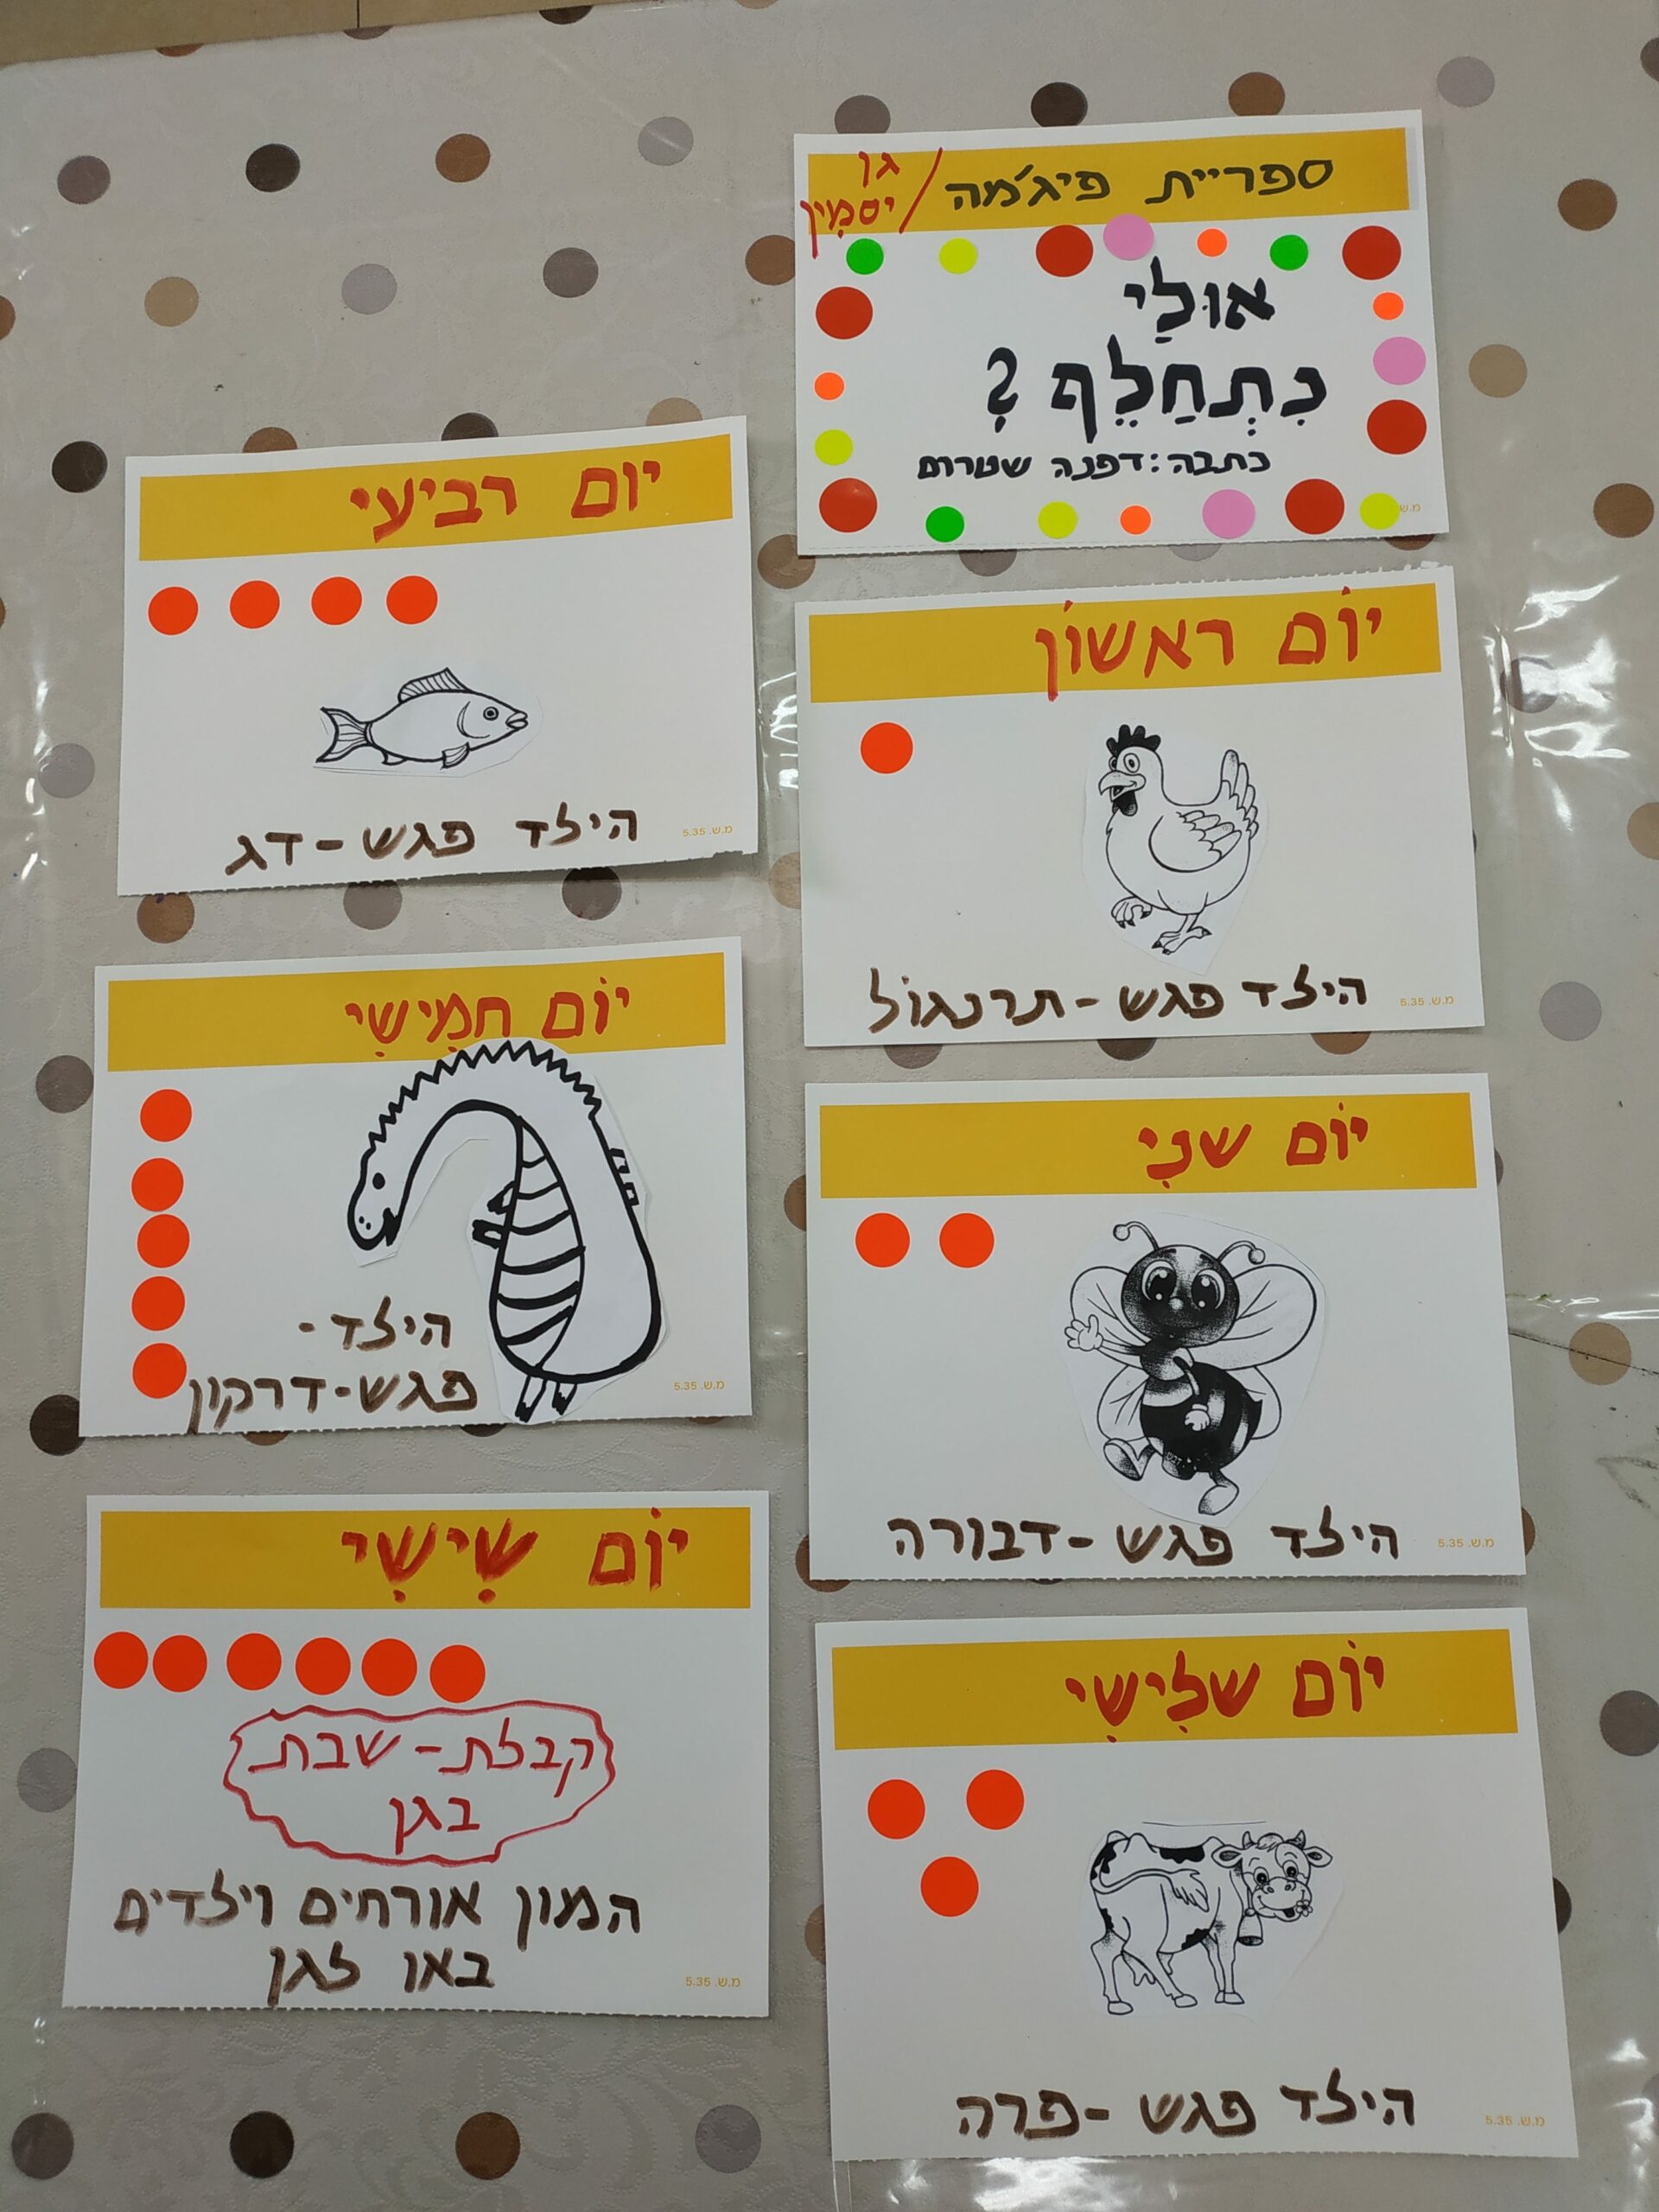 ספריית פיג'מה / גן
יסמין
אוּלַי
נִתְחַלֵּף?
כתבה: דפנה שטרום
מ.ש.
יוֹם ראשוֹן
היצד פגש - תרנגוֹל
מ.ש. 5.35
יוֹם שנִי
היצד פגש - דבורה
מ.ש. 5.35
יוֹם שלִישִי
היצד פגש - פרה
מ.ש. 5.35
יום רביעי
היצד פגש - דג
מ.ש. 5.35
יוֹם חמִישִי
היצד -
פגש - דרקון
מ.ש. 5.35
יוֹם שִישִי
קבלת - שבת
בגן
המון אורחים וילדים
באו לגן
מ.ש. 5.35